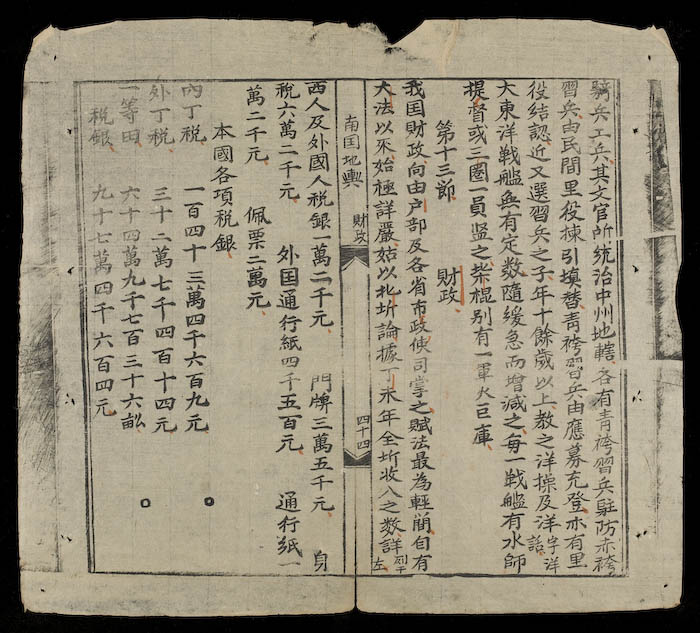 騎兵工兵其文官所統治中州地轄各有青袴習兵駐防赤袴
習兵由民間里役揀引填替青袴習兵由應募充登亦有里
役结認近又選習兵之子年十餘歲以上教之洋操及洋字洋話
大東洋戦艦無有定数隨緩急而增減之每一戦艦有水師
提督或三圈一員监之柴棍别有一軍火巨庫
第十三節 財政
我国財政向由户部及各省布政使司掌之賦法最為輕簡自有
大法以來始極詳嚴姑以北圻論據丁未年全圻收入之数詳列于左
南国地輿 財政 四十四
西人及外國人税銀一萬二千元 門牌三萬五千元 身
税六萬二千元 外国通行紙四千五百元 通行紙一
萬二千元 佩票二萬元
本國各項税銀
內丁税 一百四十三萬四千六百九元
外丁税 三十二萬七千四百十四元
一等田 六十四萬九千七百三十六畝
税銀 九十七萬四千六百四元